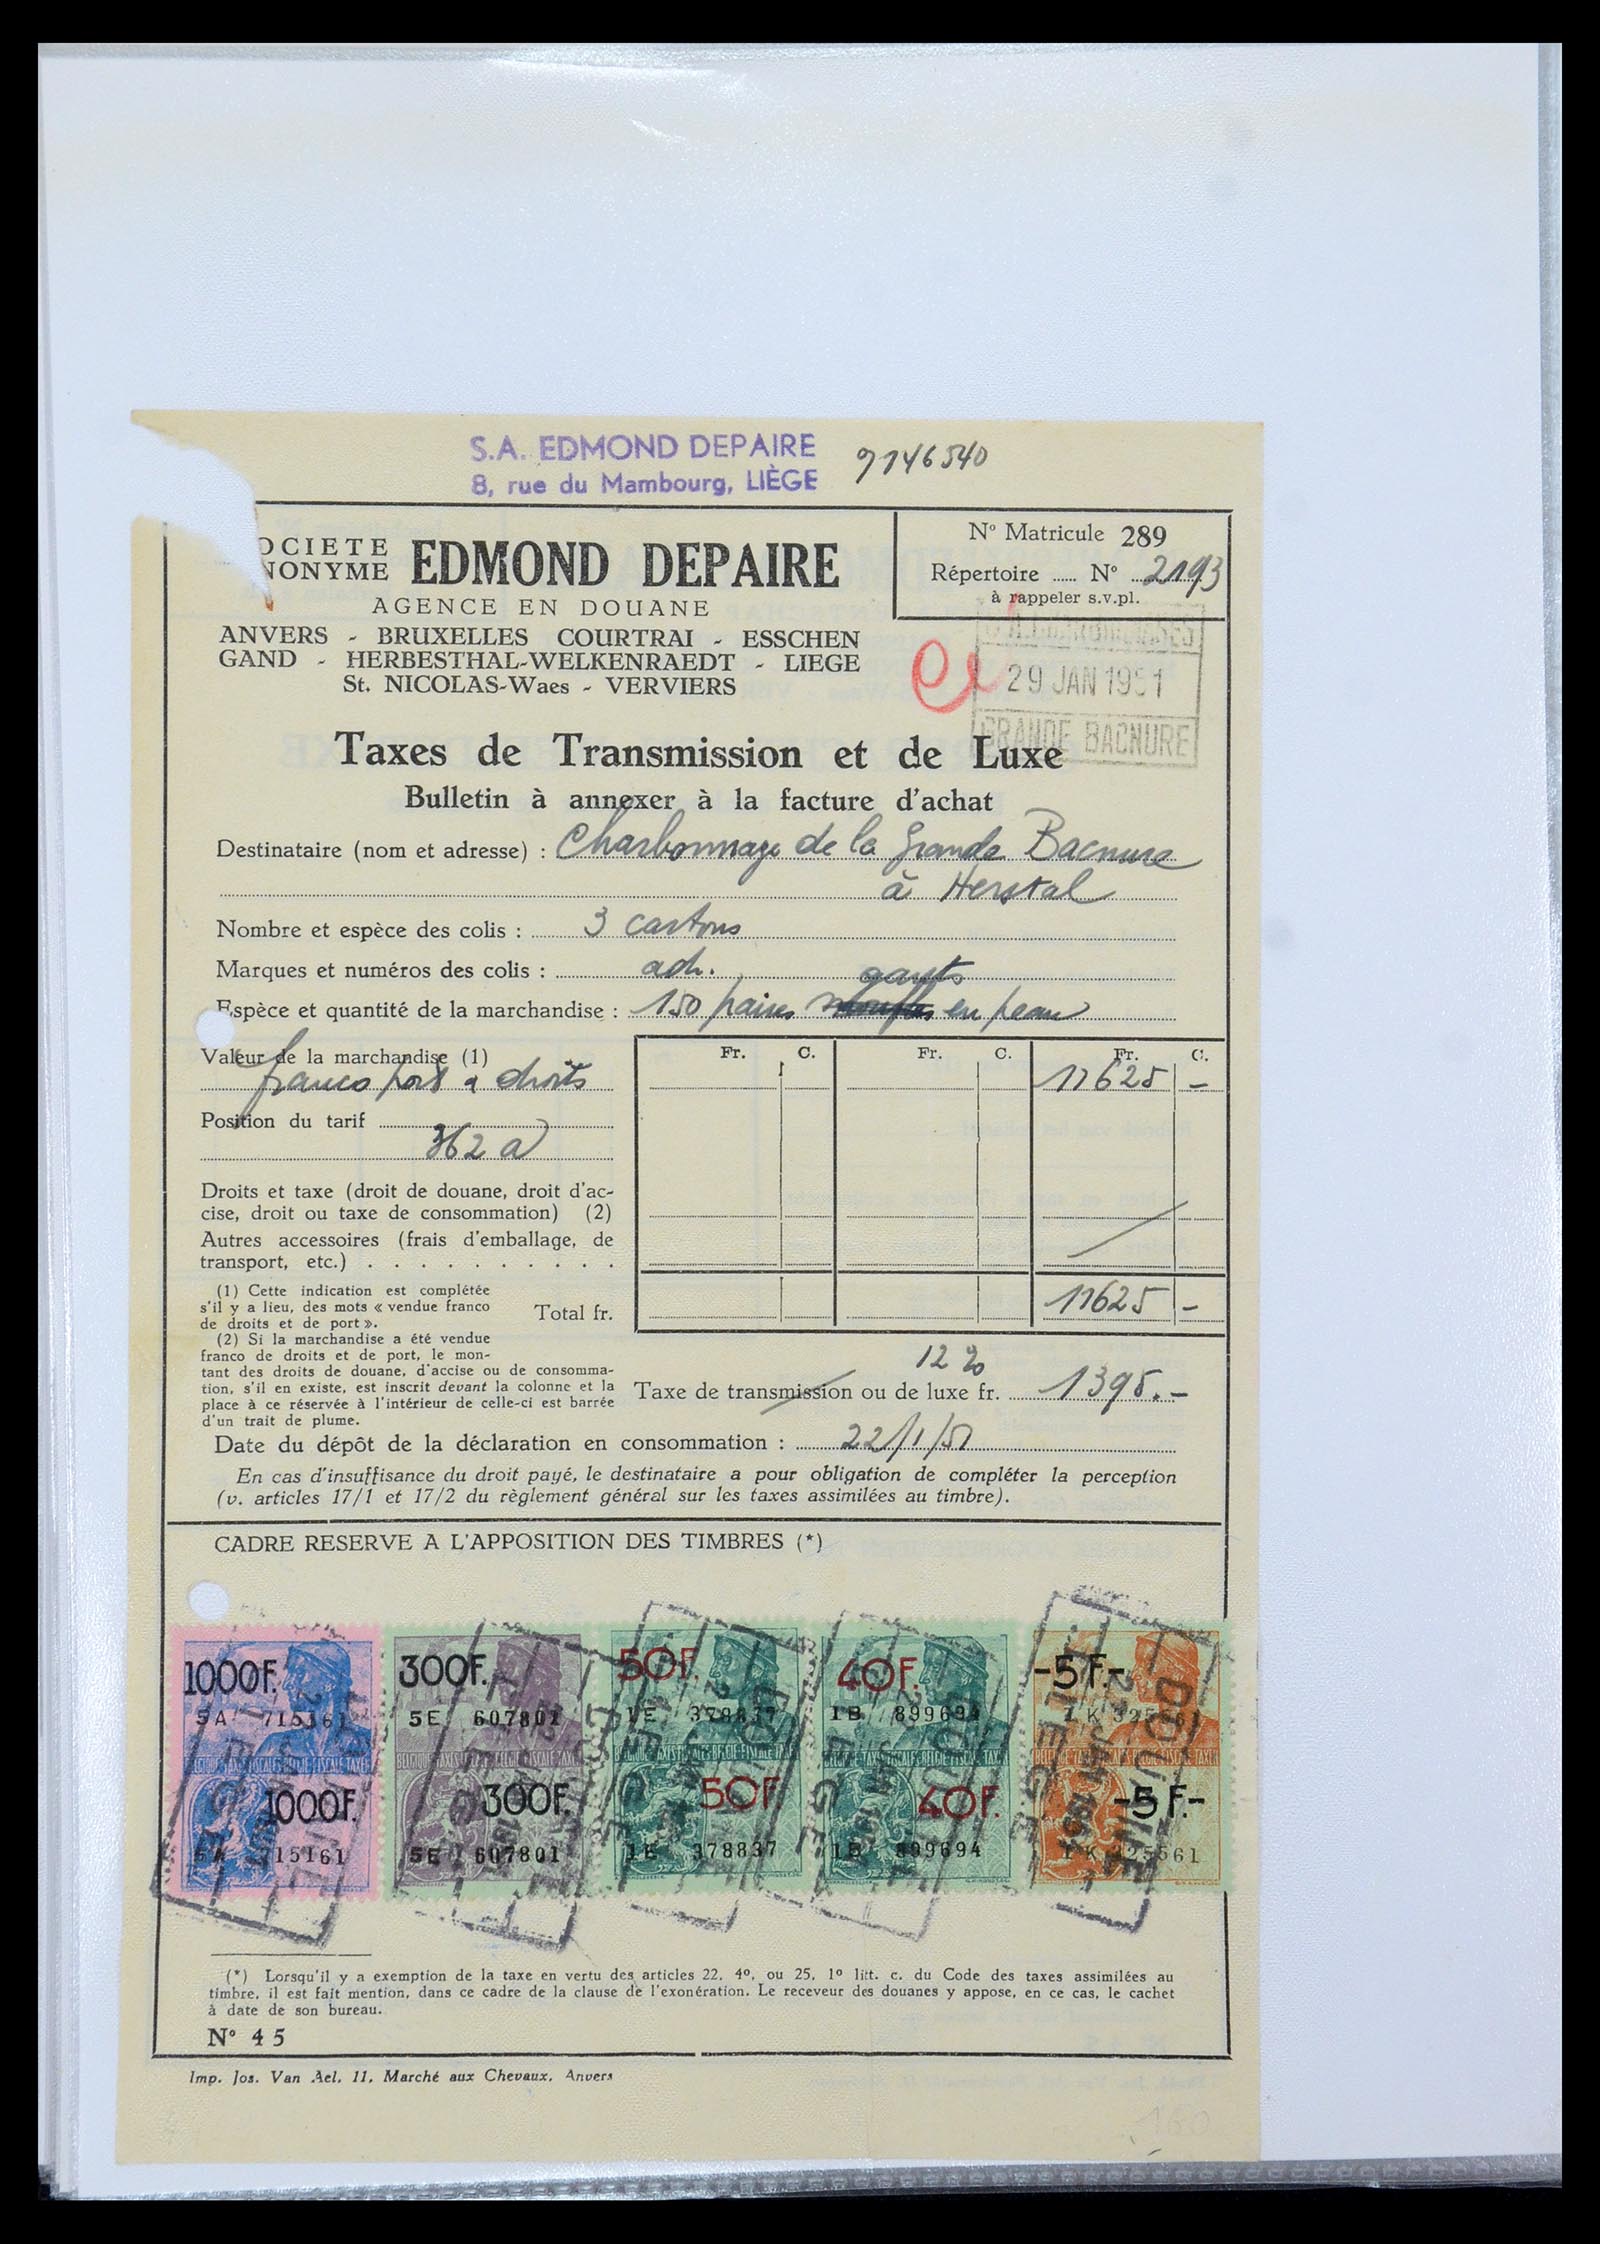 S.A. EDMOND DEPAIRE
8, rue du Mambourg, LIÈGE
9146540
OCIETE
NONYME
EDMOND DEPAIRE
AGENCE EN DOUANE
ANVERS - BRUXELLES COURTRAI - ESSCHEN
GAND - HERBESTHAL-WELKENRAEDT - LIEGE
St. NICOLAS-Waes - VERVIERS
No Matricule 289
Répertoire ...... No 2193
à rappeler s.v.pl.
29 JAN 1951
GRANDE BACNURE
Taxes de Transmission et de Luxe
Bulletin à annexer à la facture d'achat
Destinataire (nom et adresse) : Charbonnage de la Grande Bacnure
à Herstal
Nombre et espèce des colis : 3 cartons
Marques et numéros des colis : adr.
gants
Espèce et quantité de la marchandise : 150 paires moufles en peau
Fr. C. Fr. C. Fr. C.
Valeur de la marchandise (1)
franco port & droits 11625 -
Position du tarif
362 a
Droits et taxe (droit de douane, droit d'ac-
cise, droit ou taxe de consommation) (2)
Autres accessoires (frais d'emballage, de
transport, etc.) . . . . . . . . . .
(1) Cette indication est complétée
s'il y a lieu, des mots « vendue franco
de droits et de port ».
Total fr. 11625 -
(2) Si la marchandise a été vendue
franco de droits et de port, le mon-
tant des droits de douane, d'accise ou de consomma-
tion, s'il en existe, est inscrit devant la colonne et la
place à ce réservée à l'intérieur de celle-ci est barrée
d'un trait de plume.
12 %
Taxe de transmission ou de luxe fr. 1395.-
Date du dépôt de la déclaration en consommation : 22/1/51
En cas d'insuffisance du droit payé, le destinataire a pour obligation de compléter la perception
(v. articles 17/1 et 17/2 du règlement général sur les taxes assimilées au timbre).
CADRE RESERVE A L'APPOSITION DES TIMBRES (*)
1000F. 300F. 50F. 40F. -5F.-
5A 715161 5E 607801 1E 378837 1B 899694 1K 325561
BELGIQUE-TAXES FISCALES-BELGIE-FISCALE TAXEN
1000F. 300F. 50F. 40F. -5F.-
5A 715161 5E 607801 1E 378837 1B 899694 1K 325561
DOUANE
LIEGE
(*) Lorsqu'il y a exemption de la taxe en vertu des articles 22, 4o, ou 25, 1o litt. c. du Code des taxes assimilées au
timbre, il est fait mention, dans ce cadre de la clause de l'exonération. Le receveur des douanes y appose, en ce cas, le cachet
à date de son bureau.
No 45
Imp. Jos. Van Ael, 11, Marché aux Chevaux, Anvers
160